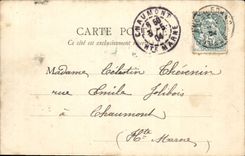 CARTE POS
Ce côté est exclusivement
CHAUMONT
HTE MARNE
Madame Célestin Thévenin
rue Emile Jolibois
à Chaumont
(Hte Marne)